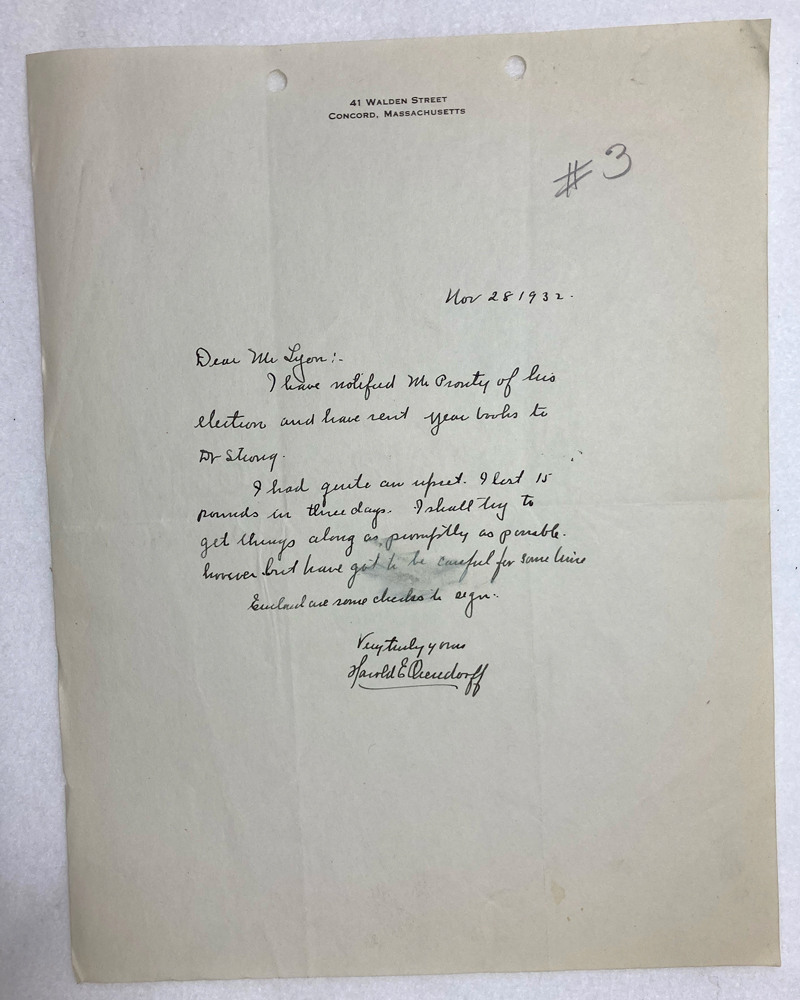 41 WALDEN STREET
CONCORD, MASSACHUSETTS
#3
Nov 28 1932.
Dear Mr Lyon:-
I have notified Mr Prouty of his
election and have sent year books to
Dr Strong.
I had quite an upset. I lost 15
pounds in three days. I shall try to
get things along as promptly as possible.
however but have got to be careful for some time
Enclosed are some checks to sign.
Very truly yours
Harold E